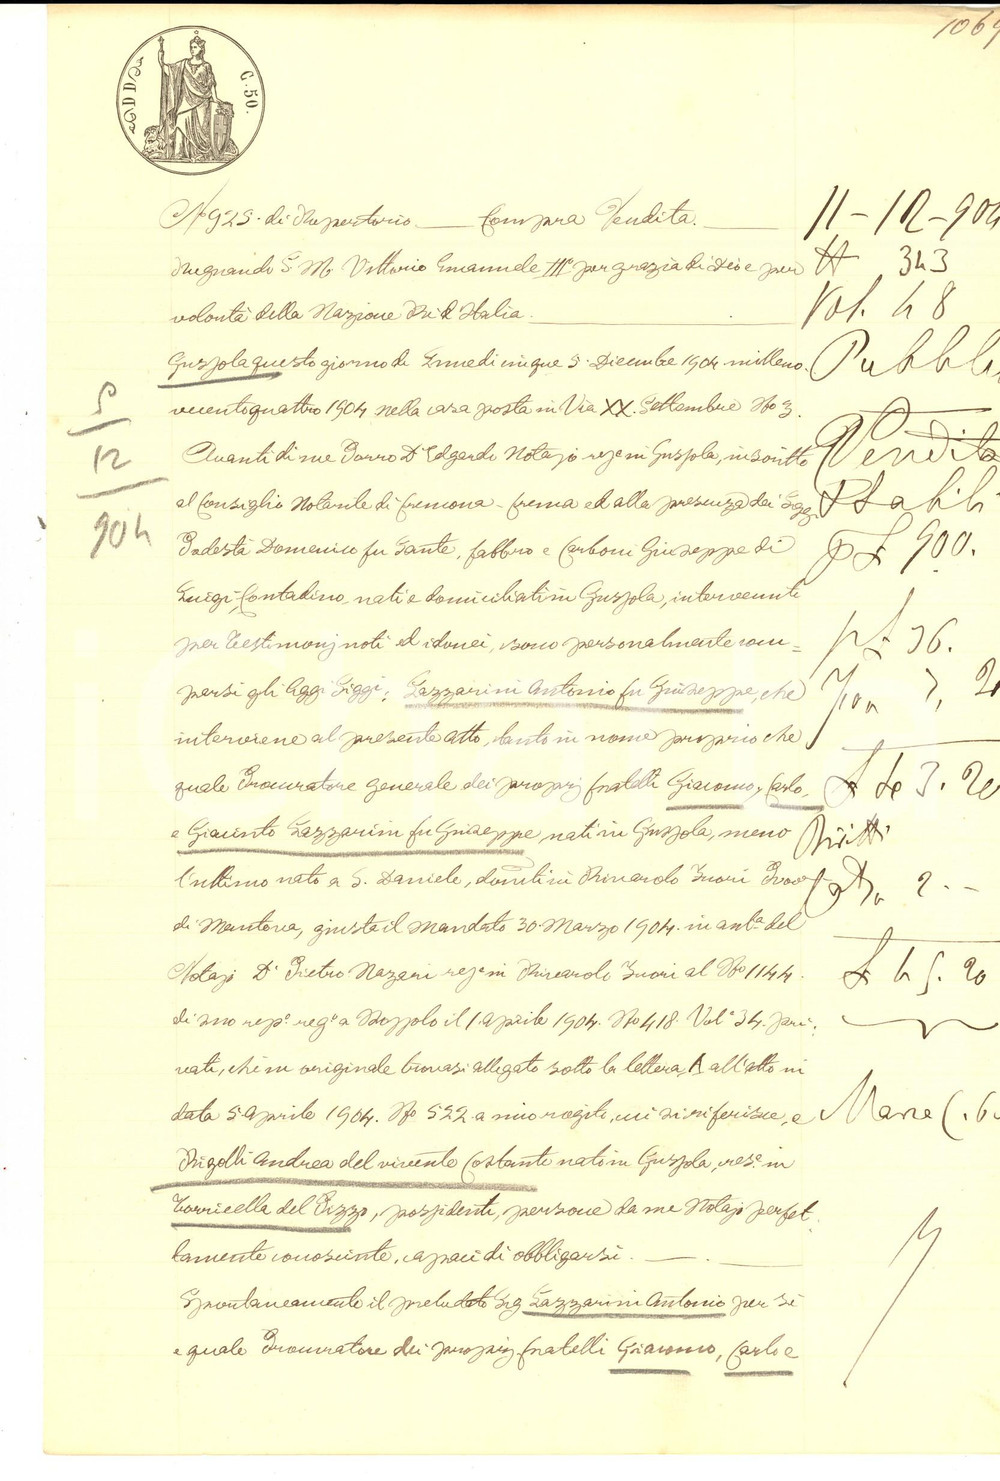 1069
DD
C. 50.
N° 925. di Repertorio Compra Vendita.
Regnando S. M. Vittorio Emanuele III° per grazia di Dio e per
volontà della Nazione Re d'Italia.
Gussola questo giorno di Lunedì cinque 5. Dicembre 1904 milleno-
vecentoquattro 1904 nella casa posta in Via XX. Settembre N° 3.
Avanti di me Porro Dr Edgardo Notajo reste in Gussola, inscritto
al Consiglio Notarile di Cremona - Crema ed alla presenza dei Sigg.
Podestà Domenico fu Sante, fabbro e Carboni Giuseppe di
Luigi, Contadino nati e domiciliati in Gussola, intervenuti
per testimonj noti ed idonei, sono personalmente com=
parsi gli Sigg: Lazzarini Antonio fu Giuseppe, che
interviene al presente atto, tanto in nome proprio che
quale Procuratore generale dei proprj fratelli Giacomo, Carlo,
e Giacinto Lazzarini fu Giuseppe, nati in Gussola, meno
l'ultimo nato a S. Daniele, domti in Rivarolo Fuori Prov.
di Mantova, giusta il Mandato 30. Marzo 1904. in auta del
Notajo Dr Pietro Nazari reste in Rivarolo Fuori al N° 1144.
di suo repo rego a Bozzolo il 1 aprile 1904. N° 418. Vole 34. pri-
vati, che in originale trovasi allegato sotto la lettera A all'atto in
data 5 Aprile 1904. N° 522 a mio rogito, cui si riferisce, e
Rigolli Andrea del vivente Costante nato in Gussola, rese in
Torricella del Pizzo, possidente, persone da me Notajo perfet-
tamente conosciute, capaci di obbligarsi.
Spontaneamente il preludato Sig Lazzarini Antonio per sè
e quale Procuratore dei proprj fratelli Giacomo, Carlo e
5
12
904
11-12-904
N 343
Vol. 48
Pubbli
Vendita
Stabili
p £ 900.
p £ 36.
£ 43. 20
Diritti
2. -
£ 45. 20